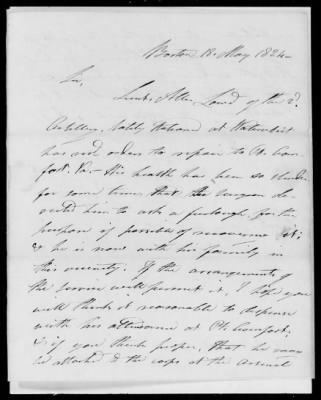 Boston 18 May 1824
Sir,
Lieut. Allen, of the 2d
Artillery, lately stationed at Watertown
has had orders to repair to Pt. Com-
fort. Va. His health has been so slender
for some time, that the surgeon de-
sired him to ask a furlough, for the
purpose if possible of recovering it;
& he is now with his family in
this vicinity. If the arrangements of
the service will permit it, I hope you
will think it reasonable to dispense
with his attendance at Pt. Comfort;
& if you think proper, that he may
be attached to the corps at the Arsenal